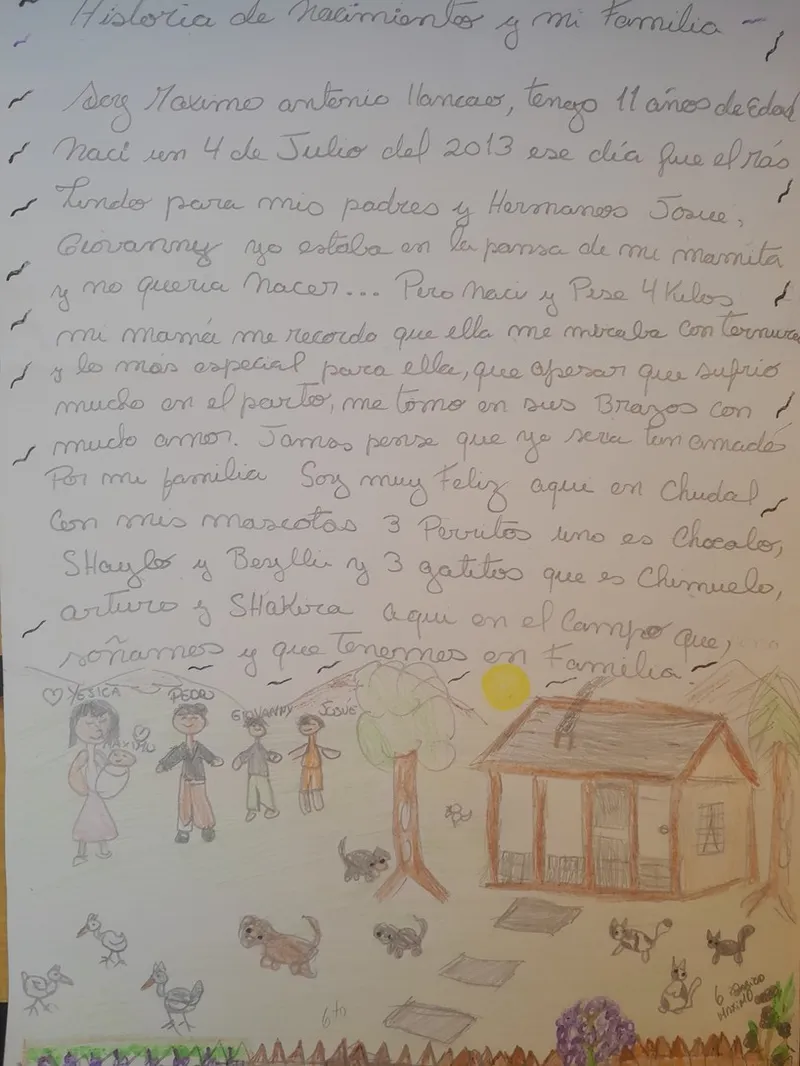 Historia de Nacimiento y mi Familia -
Soy Maximo antonio llancao, tengo 11 años de Edad
Naci un 4 de Julio del 2013 ese día fue el Más
Lindo para mis padres y Hermanos Josue,
Giovanny yo estaba en la pansa de mi mamita
y no queria Nacer... Pero Naci y Pese 4 Kilos
mi mamá me recordo que ella me miraba con ternura
y lo más especial para ella, que apesar que sufrio
mucho en el parto, me tomo en sus Brazos con
mucho amor. Jamas pense que yo seria tan amado
Por mi familia Soy muy Feliz aqui en Chudal
Con mis mascotas 3 Perritos uno es Chocolo,
SHaylo y Beylli y 3 gatitos que es Chimuelo,
arturo y SHakira aqui en el Campo que,
soñamos y que Tenemos en Familia.
YESICA
PEDRO
GIOVANNY
JOSUE
MAXIMO
6to
6 Basico
MAXIMO